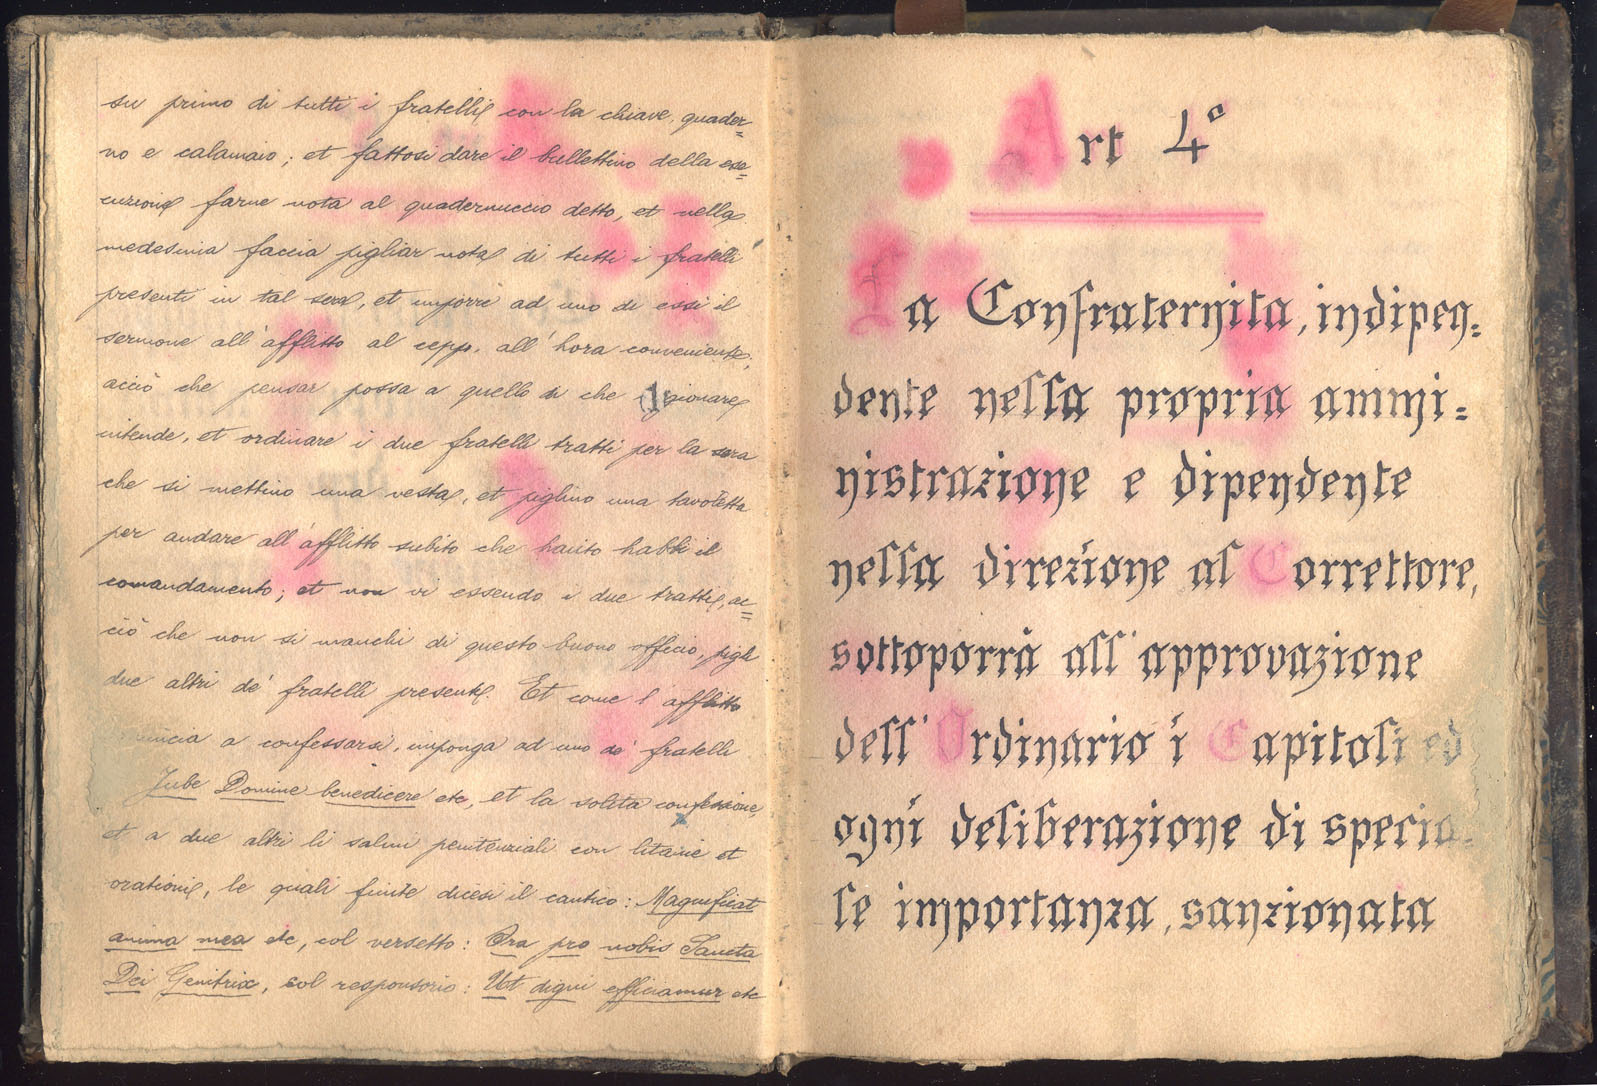 su primo di tutti i fratelli con la chiave, quader=
no e calamaio; et fattosi dare il bullettino della ese=
cuzione farne nota al quadernuccio detto, et nella
medesima faccia pigliar nota di tutti i fratelli
presenti in tal sera, et imporre ad uno di essi il
sermone all'afflitto al ceppo, all'hora conveniente,
acciò che pensar possa a quello di che
intende, et ordinare i due fratelli tratti per la sera
che si mettino una vesta, et piglino una tavoletta
per andare all'afflitto subito che hauto habbi il
comandamento; et non vi essendo i due tratti, ac=
ciò che non si manchi di questo buono officio, pigli
due altri de' fratelli presenti. Et come l'afflitto
comincia a confessarsi, imponga ad uno de' fratelli
Jube Domine benedicere etc, et la solita confessione,
et a due altri li salmi penitenziali con litanie et
orationi, le quali finite dicesi il cantico: Magnificat
anima mea etc, col versetto: Ora pro nobis Sancta
Dei Genitrix, col responsorio: Ut digni efficiamur etc
Art 4º
La Confraternita, indipen=
dente nella propria ammi=
nistrazione e dipendente
nella direzione al Correttore,
sottoporrà all'approvazione
dell'Ordinario i Capitoli ed
ogni deliberazione di specia=
le importanza, sanzionata